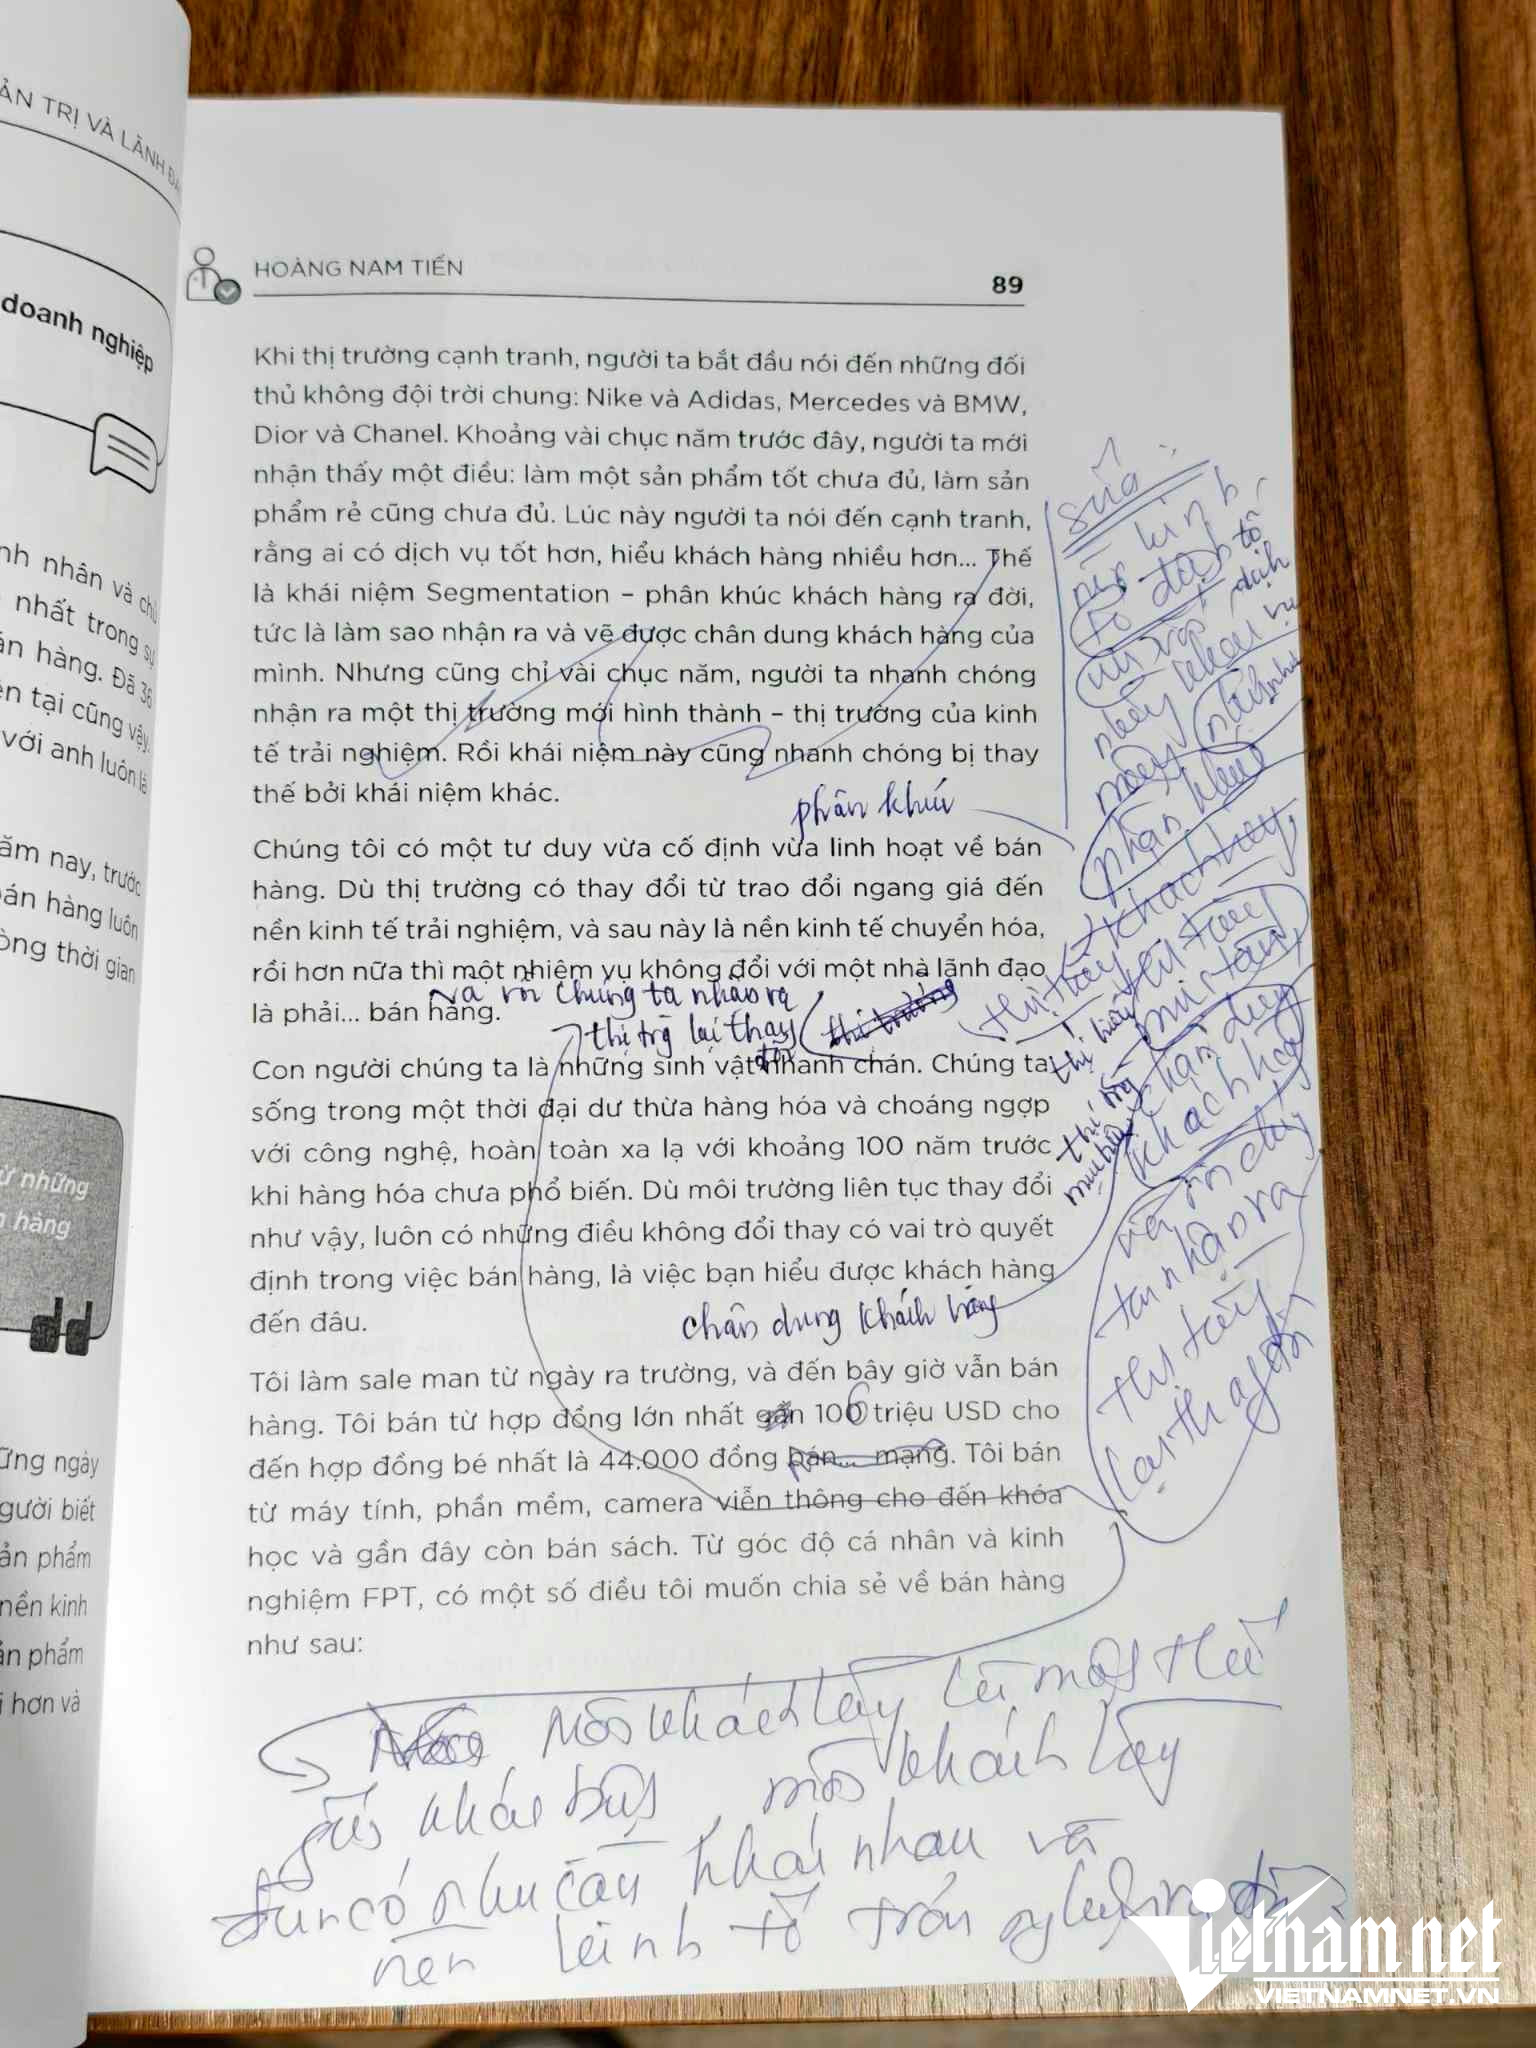 ẢN TRỊ VÀ LÃNH ĐẠ
doanh nghiệp
nh nhân và chủ
nhất trong sự
án hàng. Đã 36
ện tại cũng vậy.
với anh luôn là
ăm nay, trước
bán hàng luôn
òng thời gian
ừ những
hàng
ững ngày
gười biết
ản phẩm
nền kinh
ản phẩm
hơn và
HOÀNG NAM TIẾN
89
Khi thị trường cạnh tranh, người ta bắt đầu nói đến những đối
thủ không đội trời chung: Nike và Adidas, Mercedes và BMW,
Dior và Chanel. Khoảng vài chục năm trước đây, người ta mới
nhận thấy một điều: làm một sản phẩm tốt chưa đủ, làm sản
phẩm rẻ cũng chưa đủ. Lúc này người ta nói đến cạnh tranh,
rằng ai có dịch vụ tốt hơn, hiểu khách hàng nhiều hơn... Thế
là khái niệm Segmentation – phân khúc khách hàng ra đời,
tức là làm sao nhận ra và vẽ được chân dung khách hàng của
mình. Nhưng cũng chỉ vài chục năm, người ta nhanh chóng
nhận ra một thị trường mới hình thành – thị trường của kinh
tế trải nghiệm. Rồi khái niệm này cũng nhanh chóng bị thay
thế bởi khái niệm khác.
phân khúc
Chúng tôi có một tư duy vừa cố định vừa linh hoạt về bán
hàng. Dù thị trường có thay đổi từ trao đổi ngang giá đến
nền kinh tế trải nghiệm, và sau này là nền kinh tế chuyển hóa,
rồi hơn nữa thì một nhiệm vụ không đổi với một nhà lãnh đạo
là phải... bán hàng.
và rồi chúng ta nhận ra
thị trg lại thay
đổi
thị trường
Con người chúng ta là những sinh vật nhanh chán. Chúng ta
sống trong một thời đại dư thừa hàng hóa và choáng ngợp
với công nghệ, hoàn toàn xa lạ với khoảng 100 năm trước
khi hàng hóa chưa phổ biến. Dù môi trường liên tục thay đổi
như vậy, luôn có những điều không đổi thay có vai trò quyết
định trong việc bán hàng, là việc bạn hiểu được khách hàng
đến đâu.
chân dung khách hàng
Tôi làm sale man từ ngày ra trường, và đến bây giờ vẫn bán
hàng. Tôi bán từ hợp đồng lớn nhất gần 106 triệu USD cho
đến hợp đồng bé nhất là 44.000 đồng bán... mạng. Tôi bán
từ máy tính, phần mềm, camera viễn thông cho đến khóa
học và gần đây còn bán sách. Từ góc độ cá nhân và kinh
nghiệm FPT, có một số điều tôi muốn chia sẻ về bán hàng
như sau:
sửa
phân khúc
khách hàng
thị trường
chân dung
khách hàng
và rồi chúng
ta nhận ra
thị trường
lại thay đổi
Mỗi khách hàng là một thế
giới khác biệt, mỗi khách hàng
đều có nhu cầu khác nhau và
nền kinh tế trải nghiệm ra đời
Vietnamnet
VIETNAMNET.VN